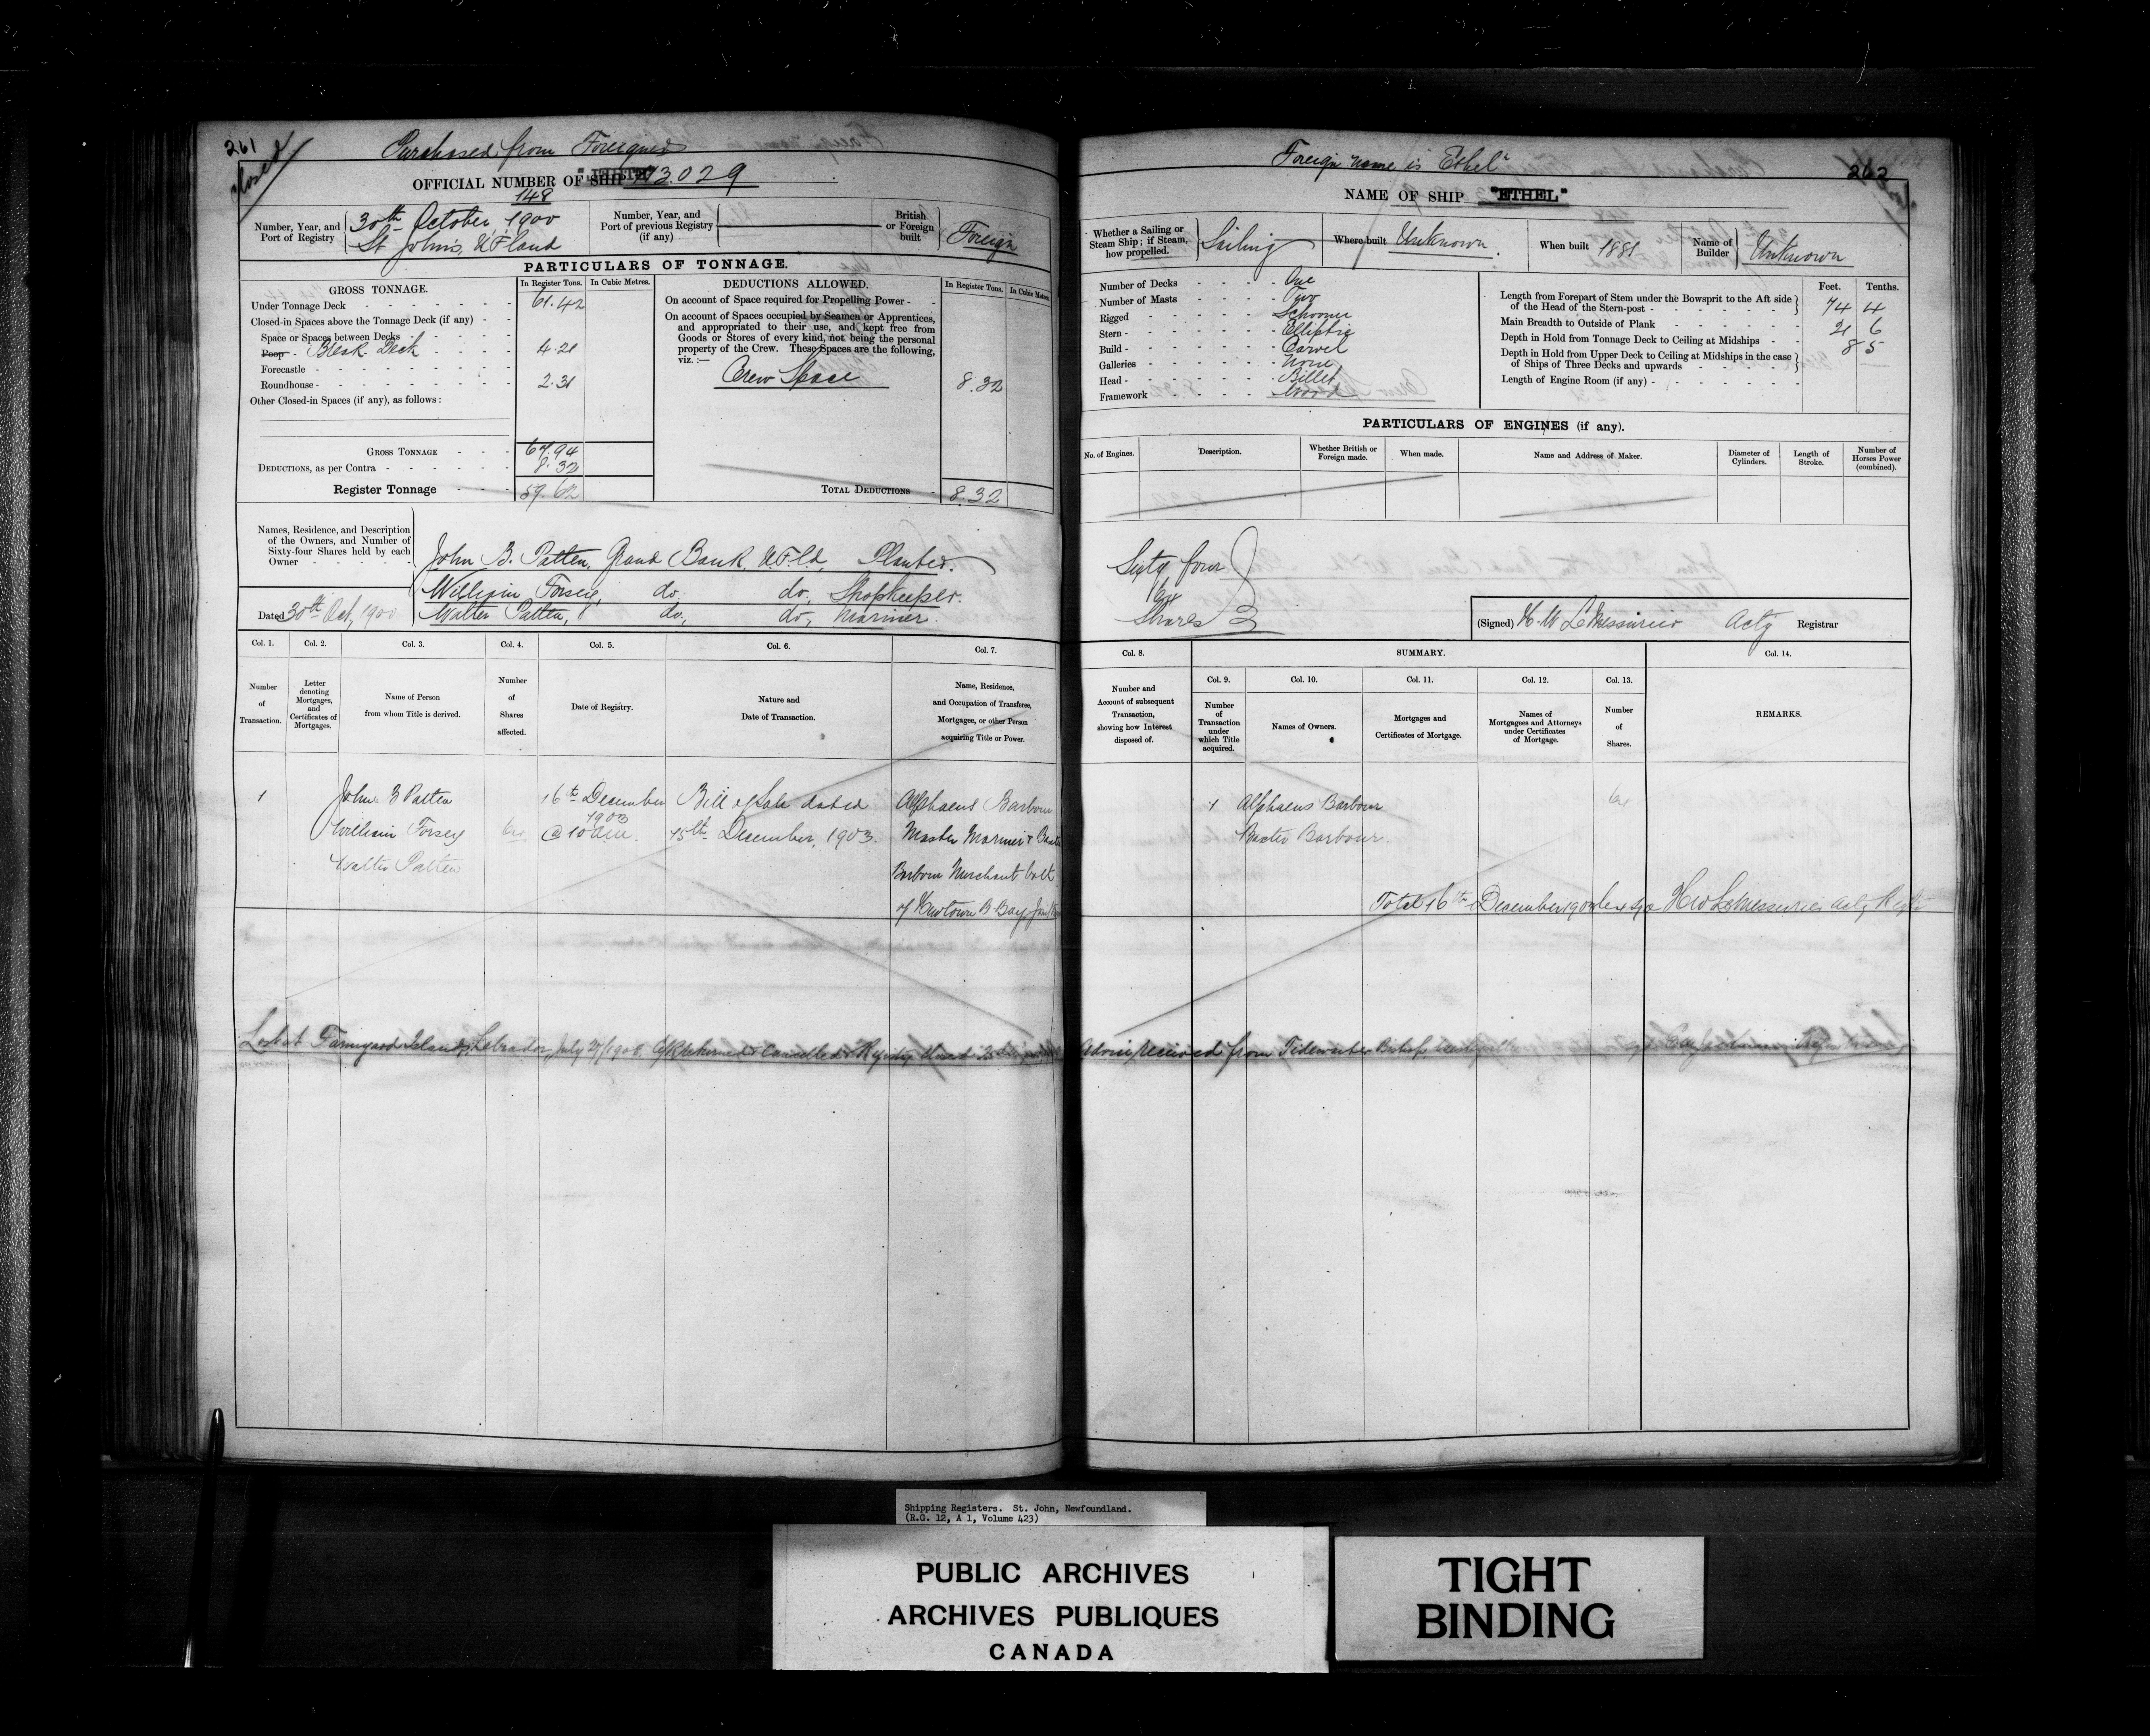 261
Closed
Purchased from Foreigners
OFFICIAL NUMBER OF SHIP 73.029
148
Number, Year, and Port of Registry
30th October, 1900
St John's, N'F'land
Number, Year, and Port of previous Registry (if any)
British or Foreign built
Foreign
PARTICULARS OF TONNAGE.
GROSS TONNAGE.
In Register Tons.
In Cubic Metres.
Under Tonnage Deck 61.42
Closed-in Spaces above the Tonnage Deck (if any)
Space or Spaces between Decks
Poop Break Deck 4.21
Forecastle
Roundhouse 2.31
Other Closed-in Spaces (if any), as follows:
GROSS TONNAGE 67.94
DEDUCTIONS, as per Contra 8.32
Register Tonnage 59.62
DEDUCTIONS ALLOWED.
In Register Tons.
In Cubic Metres.
On account of Space required for Propelling Power
On account of Spaces occupied by Seamen or Apprentices,
and appropriated to their use, and kept free from
Goods or Stores of every kind, not being the personal
property of the Crew. These Spaces are the following,
viz.:—
Crew Space 8.32
TOTAL DEDUCTIONS 8.32
Names, Residence, and Description
of the Owners, and Number of
Sixty-four Shares held by each
Owner
John B. Patten, Grand Bank, N.F.Ld, Planter.
William Forsey, do. do, Shopkeeper.
Dated 30th Oct, 1900
Walter Patten, do, do, Mariner.
Col. 1.
Col. 2.
Col. 3.
Col. 4.
Col. 5.
Col. 6.
Col. 7.
Number of Transaction.
Letter denoting Mortgages, and Certificates of Mortgages.
Name of Person from whom Title is derived.
Number of Shares affected.
Date of Registry.
Nature and Date of Transaction.
Name, Residence, and Occupation of Transferee, Mortgagee, or other Person acquiring Title or Power.
1 John B Patten 16th December Bill of Sale dated Alphaeus Barbour
1903
William Forsey 64 @ 10 a.m. 15th December, 1903. Master Mariner &
Walter Patten Barbour Merchant both
of Newtown B Bay
Lost at Farmyard Islands, Labrador, July 27/1908. Cancelled & Registry closed
262
Foreign name is "Ethel"
NAME OF SHIP "ETHEL"
Whether a Sailing or Steam Ship; if Steam, how propelled.
Sailing
Where built Unknown.
When built 1881
Name of Builder Unknown
Number of Decks One
Number of Masts Two
Rigged Schooner
Stern Elliptic
Build Carvel
Galleries None
Head Billet
Framework Wood
Feet.
Tenths.
Length from Forepart of Stem under the Bowsprit to the Aft side of the Head of the Stern-post 74 4
Main Breadth to Outside of Plank 21 6
Depth in Hold from Tonnage Deck to Ceiling at Midships 8 5
Depth in Hold from Upper Deck to Ceiling at Midships in the case of Ships of Three Decks and upwards
Length of Engine Room (if any)
PARTICULARS OF ENGINES (if any).
No. of Engines.
Description.
Whether British or Foreign made.
When made.
Name and Address of Maker.
Diameter of Cylinders.
Length of Stroke.
Number of Horses Power (combined).
Sixty four
64
Shares
(Signed) H. W LeMessurier Actg Registrar
Col. 8.
SUMMARY.
Col. 14.
Col. 9.
Col. 10.
Col. 11.
Col. 12.
Col. 13.
Number and Account of subsequent Transaction, showing how Interest disposed of.
Number of Transaction under which Title acquired.
Names of Owners.
Mortgages and Certificates of Mortgage.
Names of Mortgagees and Attorneys under Certificates of Mortgage.
Number of Shares.
REMARKS.
1 Alphaeus Barbour 64
Baxter Barbour.
Total 16th December 1903 H W LeMessurier Actg Regr
received from Tidewaiter
Shipping Registers. St. John, Newfoundland.
(R.G. 12, A 1, Volume 423)
PUBLIC ARCHIVES
ARCHIVES PUBLIQUES
CANADA
TIGHT
BINDING